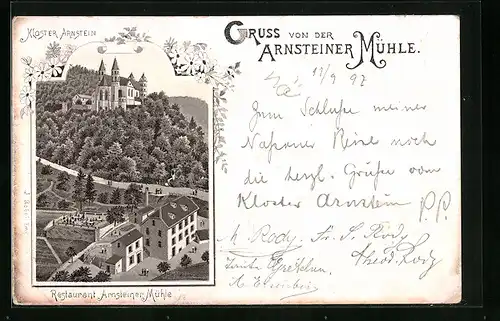 Kloster Arnstein
Gruss von der
Arnsteiner Mühle.
12/9 97
Zum Schluße meiner
Nassauer Reise noch
die herzl. Grüße vom
Kloster Arnstein
P.P.
M. Rody Fr. S. Rody
Theod. Rody
Gretchen
Restaurant Arnsteiner Mühle